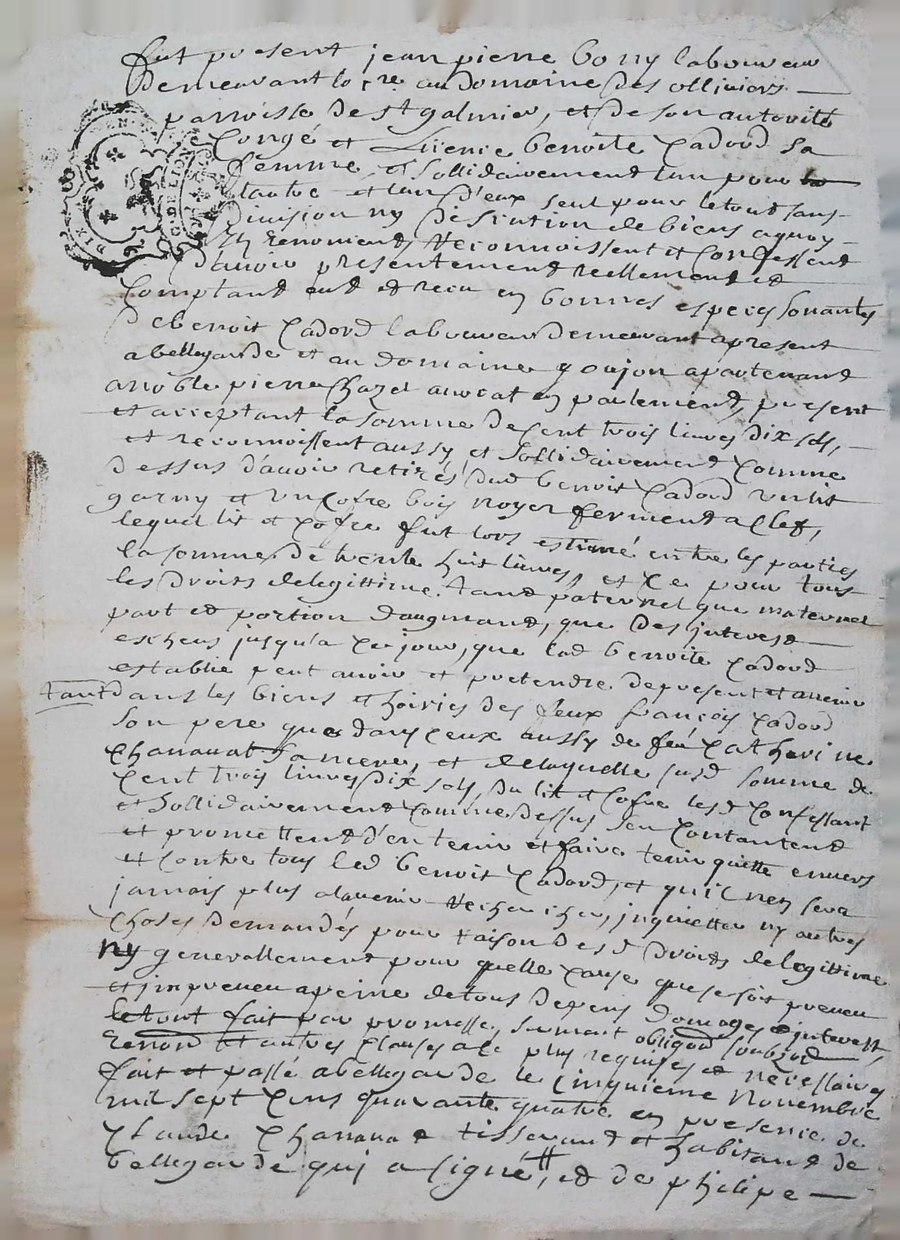 fut present jean pierre bony laboureur
demeurant locre au domaine des olliviers
parroisse de st galmier, et de son autorité
Congé et Licence benoite Cadord sa
femme et sollidairement lun pour
lautre et lun d'eux seul pour le tout sans
division ny discution de biens a quoy
ils renoncent Reconnoissent et Confessent
d'avoir presentement reellement et
Comptant eut et recu en bonnes especes sonantes
de benoit Cadord laboureur demeurant apresent
a bellegarde et au domaine goujon apartenant
a noble pierre Chazel avocat en parlement, present
et acceptant la somme de Cent trois livres dix sols,
et reconnoissent aussy et sollidairement Comme
dessus d'avoir retirés dud benoit Cadord un lit
garny et un Cofre bois noyer ferment a Clef,
lequel lit et Cofre fut lors estimé entre les parties
la somme de trente huit livres, et Ce pour tous
les droits de legittime tant paternel que maternel
part et portion daugmand, que des interest
escheus jusqu'a Ce jour, que lad benoite Cadord
establie peut avoir et pretendre de present et avenir
tant dans les biens et hoiries des feux françois Cadord
son pere que dans Ceux aussy de feu Catherine
Chanavat sa mere, et de laquelle susd somme de
Cent trois livres dix sols, du lit et Cofre lesd Confessant
et sollidairement Comme dessus sen Contantent
et promettent d'en tenir et faire tenir quitte envers
et Contre tous led benoit Cadord, et qu'il n'en sera
jamais plus alavenir Recherché, inquietter ny autres
Choses demandés pour raison desd droits de legittime
ny generallement pour quelle Cause que se soit preveu
et impreveu a peine de tous depens domages interest,
le tout fait par promesse, sermant obligaon soubzon
Renon et autres Clauses a Ce plus requises et nécessaires
fait et passé a bellegarde le Cinquieme novembre
mil sept Cens quarante quatre en presence de
Claude Chanavat tisserand et habitant de
bellegarde qui a signé, et de philipe
DIX
DEN
G. DE LION